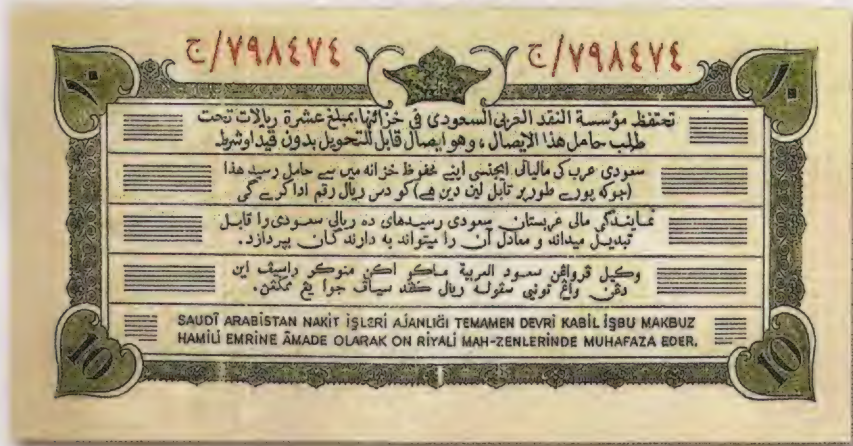 ج/٧٩٨٤٧٤ ج/٧٩٨٤٧٤
١٠ ١٠
تحتفظ مؤسسة النقد العربي السعودي في خزائنها بمبلغ عشرة ريالات تحت
طلب حامل هذا الايصال، وهو ايصال قابل للتحويل بدون قيد اوشرط.
سعودی عرب کی مالیاتی ایجنسی اپنے محفوظ خزانہ میں سے حامل رسید ھذا
(جوکہ پورے طورپر قابل لین دین ھے) کو دس ریال رقم ادا کرے گی
نمایندگی مالی عربستان سعودی رسیدهای ده ریالی سعودی را قابل
تبدیل میداند و معادل آن را میتواند به دارندگان بپردازد.
وكيل سعود العربية اكن راسيف اين
ريال
SAUDÎ ARABİSTAN NAKİT İŞLERİ AJANLIĞI TEMAMEN DEVRİ KABİL İŞBU MAKBUZ
HAMİLİ EMRİNE ÂMADE OLARAK ON RİYALİ MAH-ZENLERİNDE MUHAFAZA EDER.
10 10